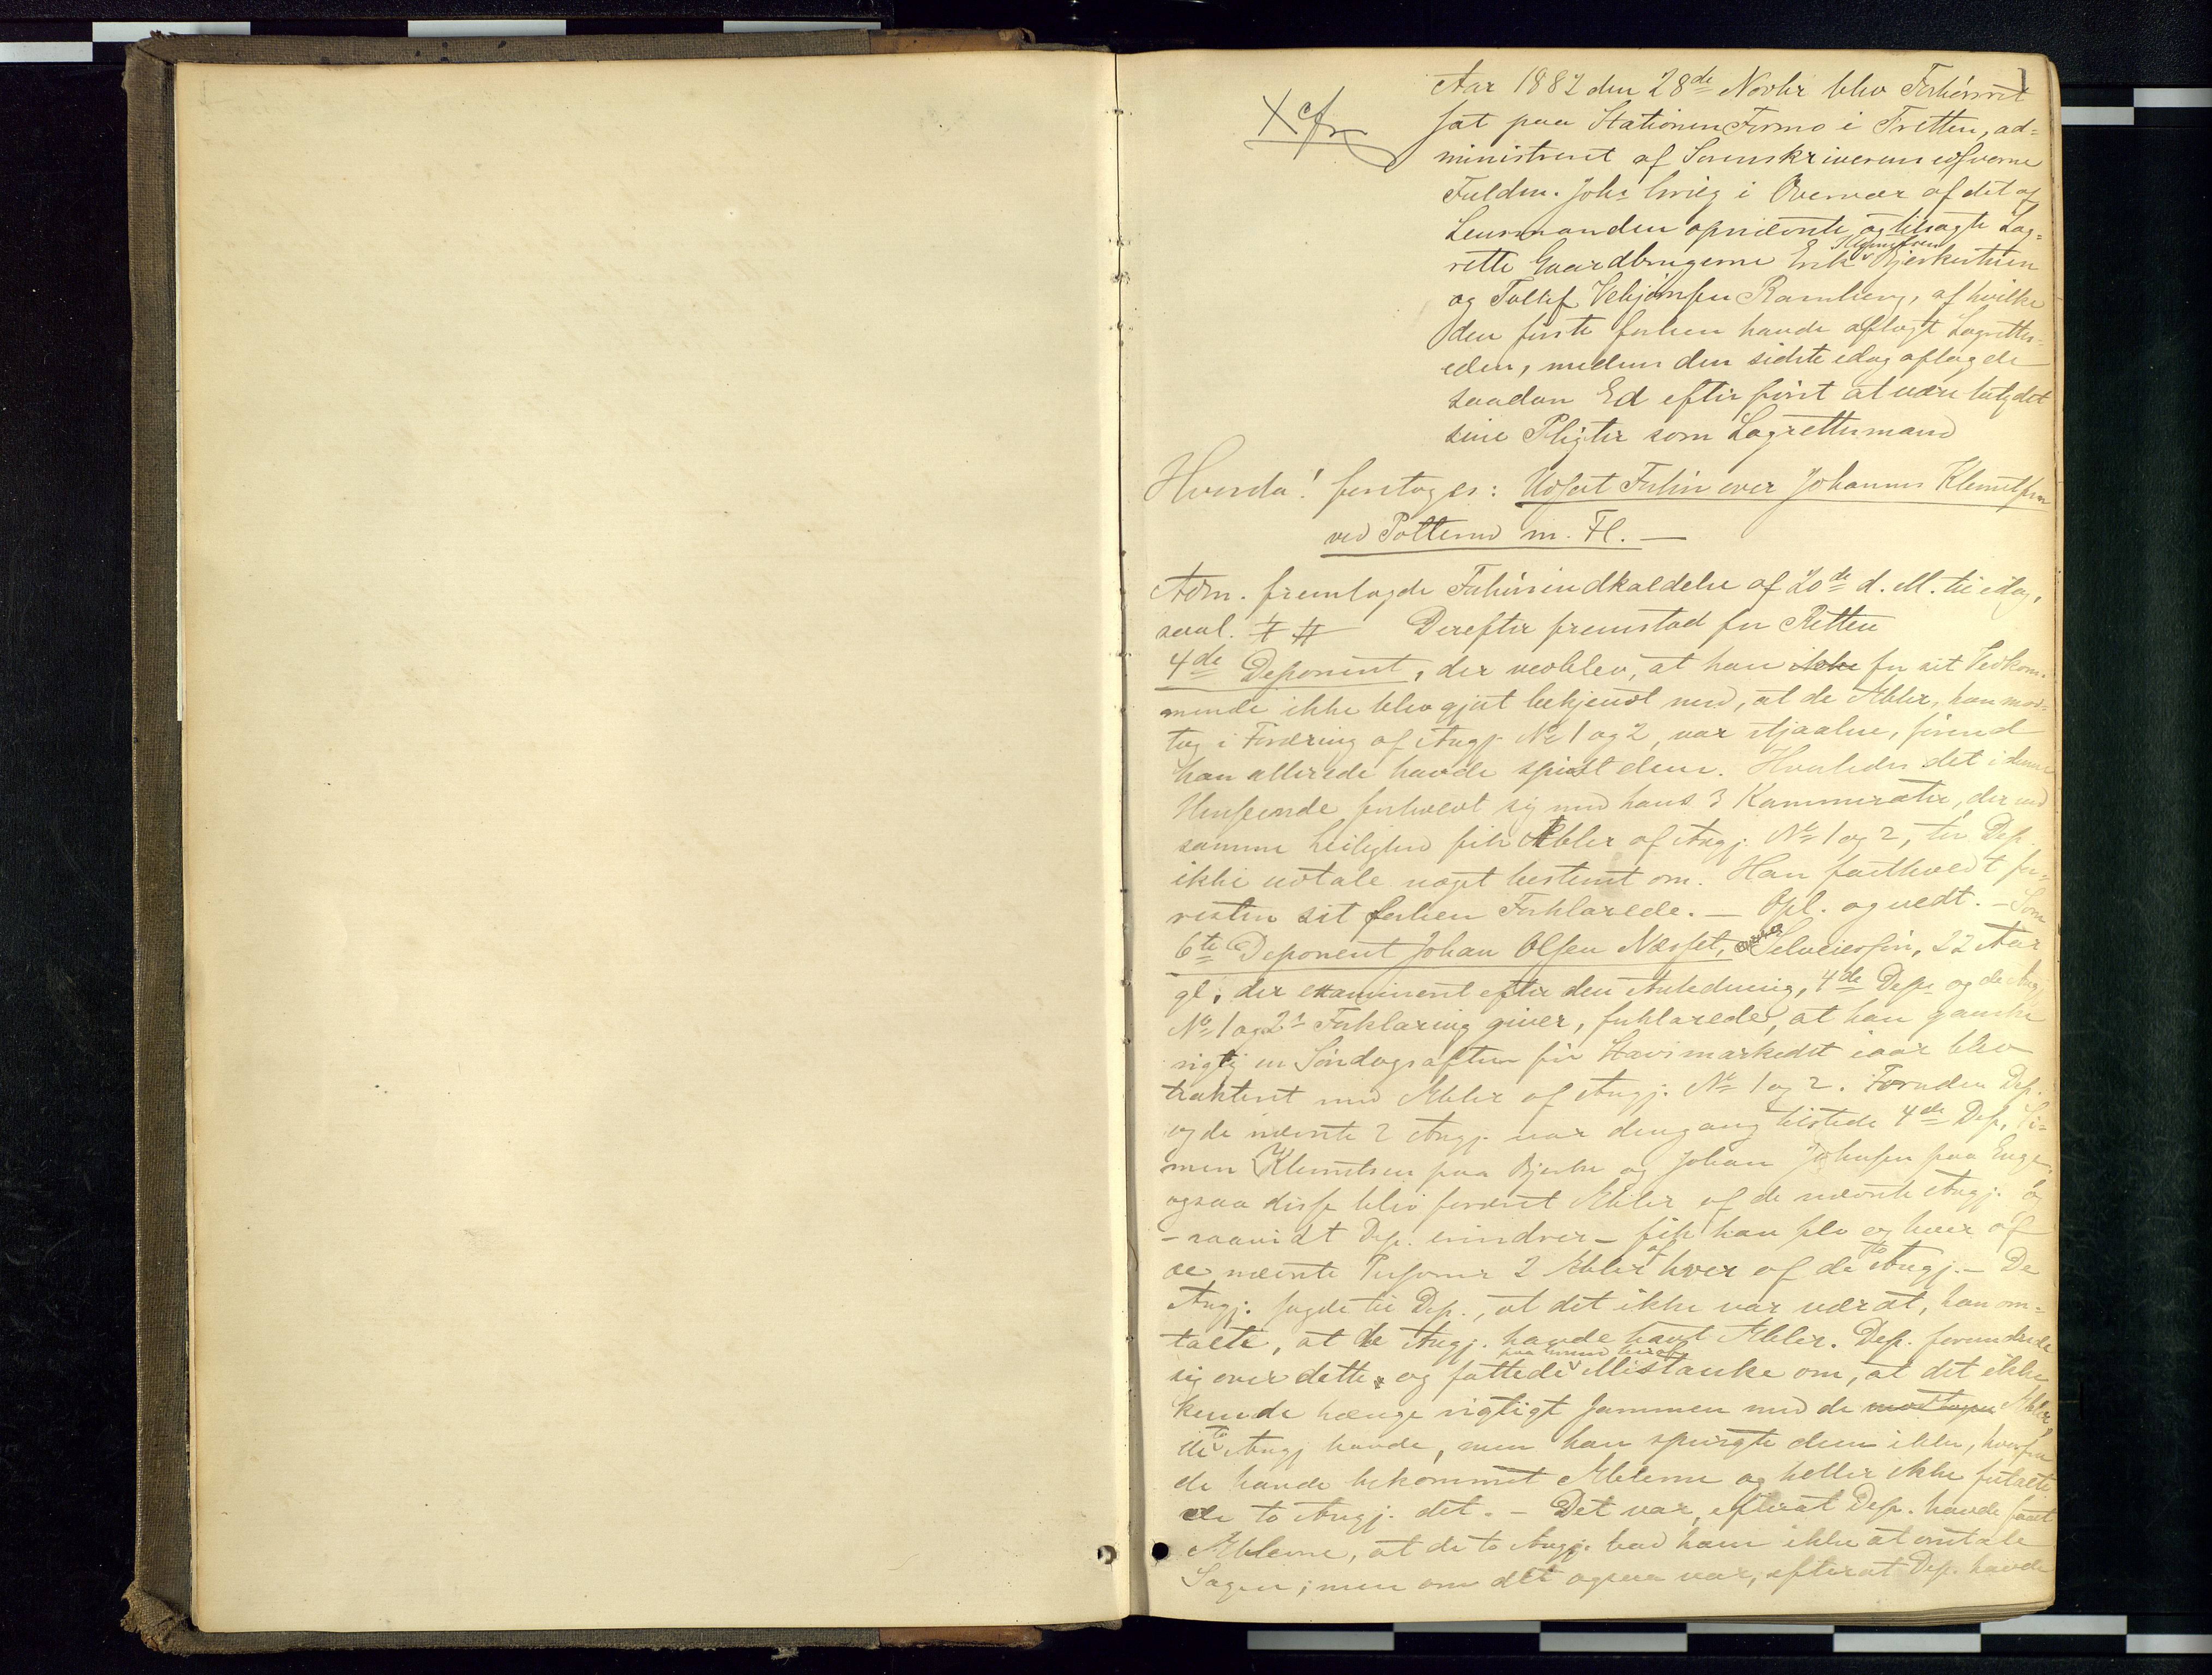 1
Aar 1882 den 28de Novbr blev Forhørsret
X cfr
sat paa Stationen Formo i Tretten, ad=
ministreret af Sorenskriverens edsvorne
Fuldm. Joh. Grieg i Overvær af det af
Lensmanden opnævnte og tilsagte Lag=
rette Gaardbrugerne Erik Bjerkestuen
og Tollef Vebjørnsen Ramberg, af hvilke
den første forhen havde aflagt Lagrettes=
eden, medens den sidste idag aflagde
saadan Ed efter først at være betydet
sine Pligter som Lagrettemand
Hvorda! foretoges: Udsat Forhør over Johannes Klemetsen
ved Potterud m. Fl. —
Adm. fremlagde Forhørsindkaldelse af 20de d. M. til idag,
saal. ‡ ‡‡ Derefter fremstod for Retten
4de Deponent, der vedblev, at han ikke for sit Vedkom=
mende ikke blev gjort bekjendt med, at de Æbler, han mod=
tog i Foræring af Angj. No 1 og 2, var stjaalne, førend
han allerede havde spist dem. Hvorledes det i denne
Henseende forholdt sig med hans 3 Kammerater, der ved
samme Leilighed fik Æbler af Angj. No 1 og 2, tør Dep.
ikke udtale noget bestemt om. Han fastholdt for=
resten sit forhen Forklarede. — Opl. og vedt. — Som
6te Deponent Johan Olsen Næsset, Selveiersøn, 22 Aar
gl., der examineret efter den Anledning, 4de Dep. og de Angj.
No 1 og 2s Forklaring giver, forklarede, at han ganske
rigtig en Søndagsaften før Stavsmarkedet iaar blev
trakteret med Æbler af Angj. No 1 og 2. Foruden Dep.
og de nævnte 2 Angj. var dengang tilstede 4de Dep., Si=
men Klemetsen paa Bjerke og Johan Johnsen paa Enge,
ogsaa disse blev foræret Æbler af de nævnte Angj. og
– saavidt Dep. erindrer – fik han selv og hver af
de nævnte Personer 2 Æbler af hver af de to Angj. – De
Angj. sagde til Dep., at det ikke var værdt, han om=
talte, at de Angj. havde havt Æbler. Dep. forundrede
sig over dette og fattede paa Grund heraf Mistanke om, at det ikke
kunde hænge rigtigt sammen med de modtagne Æbler
de to Angj havde, men han spurgte dem ikke, hvorfra
de havde bekommet Æblerne og heller ikke fortalte
de to Angj. det. – Det var, efterat Dep. havde faaet
Æblerne, at de to Angj. bad ham ikke at omtale
Sagen; men om det ogsaa var, efterat Dep. havde